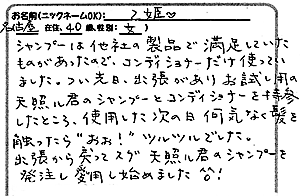 お名前(ニックネームOK): 乙姫♡
名古屋 在住、40歳、性別:女 )
シャンプーは他社の製品で満足していた
ものがあったので、コンディショナーだけ使ってい
ました。つい先日、出張があり お試し用の
天照ル君のシャンプーとコンディショナーを持参
したところ、使用した次の日 何気なく髪を
触ったら"おぉ!" ツルツルでした。
出張から戻ってスグ 天照ル君のシャンプーを
発注し愛用し始めました 笑!